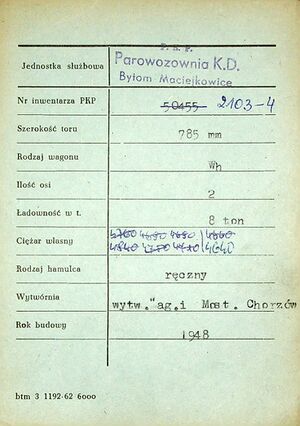 P. K. P.
Jednostka służbowa Parowozownia K.D.
Bytom Maciejkowice
Nr inwentarza PKP 50455 2103-4
Szerokość toru 785 mm
Rodzaj wagonu Wh
Ilość osi 2
Ładowność w t. 8 ton
Ciężar własny 4660
4640
Rodzaj hamulca ręczny
Wytwórnia wytw. "ag.i Most. Chorzów
Rok budowy 1948
btm 3 1192-62 6000